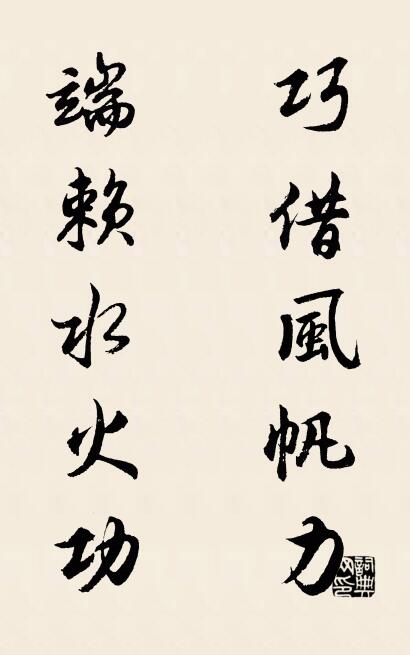 巧借風帆力
端赖水火功
詞典